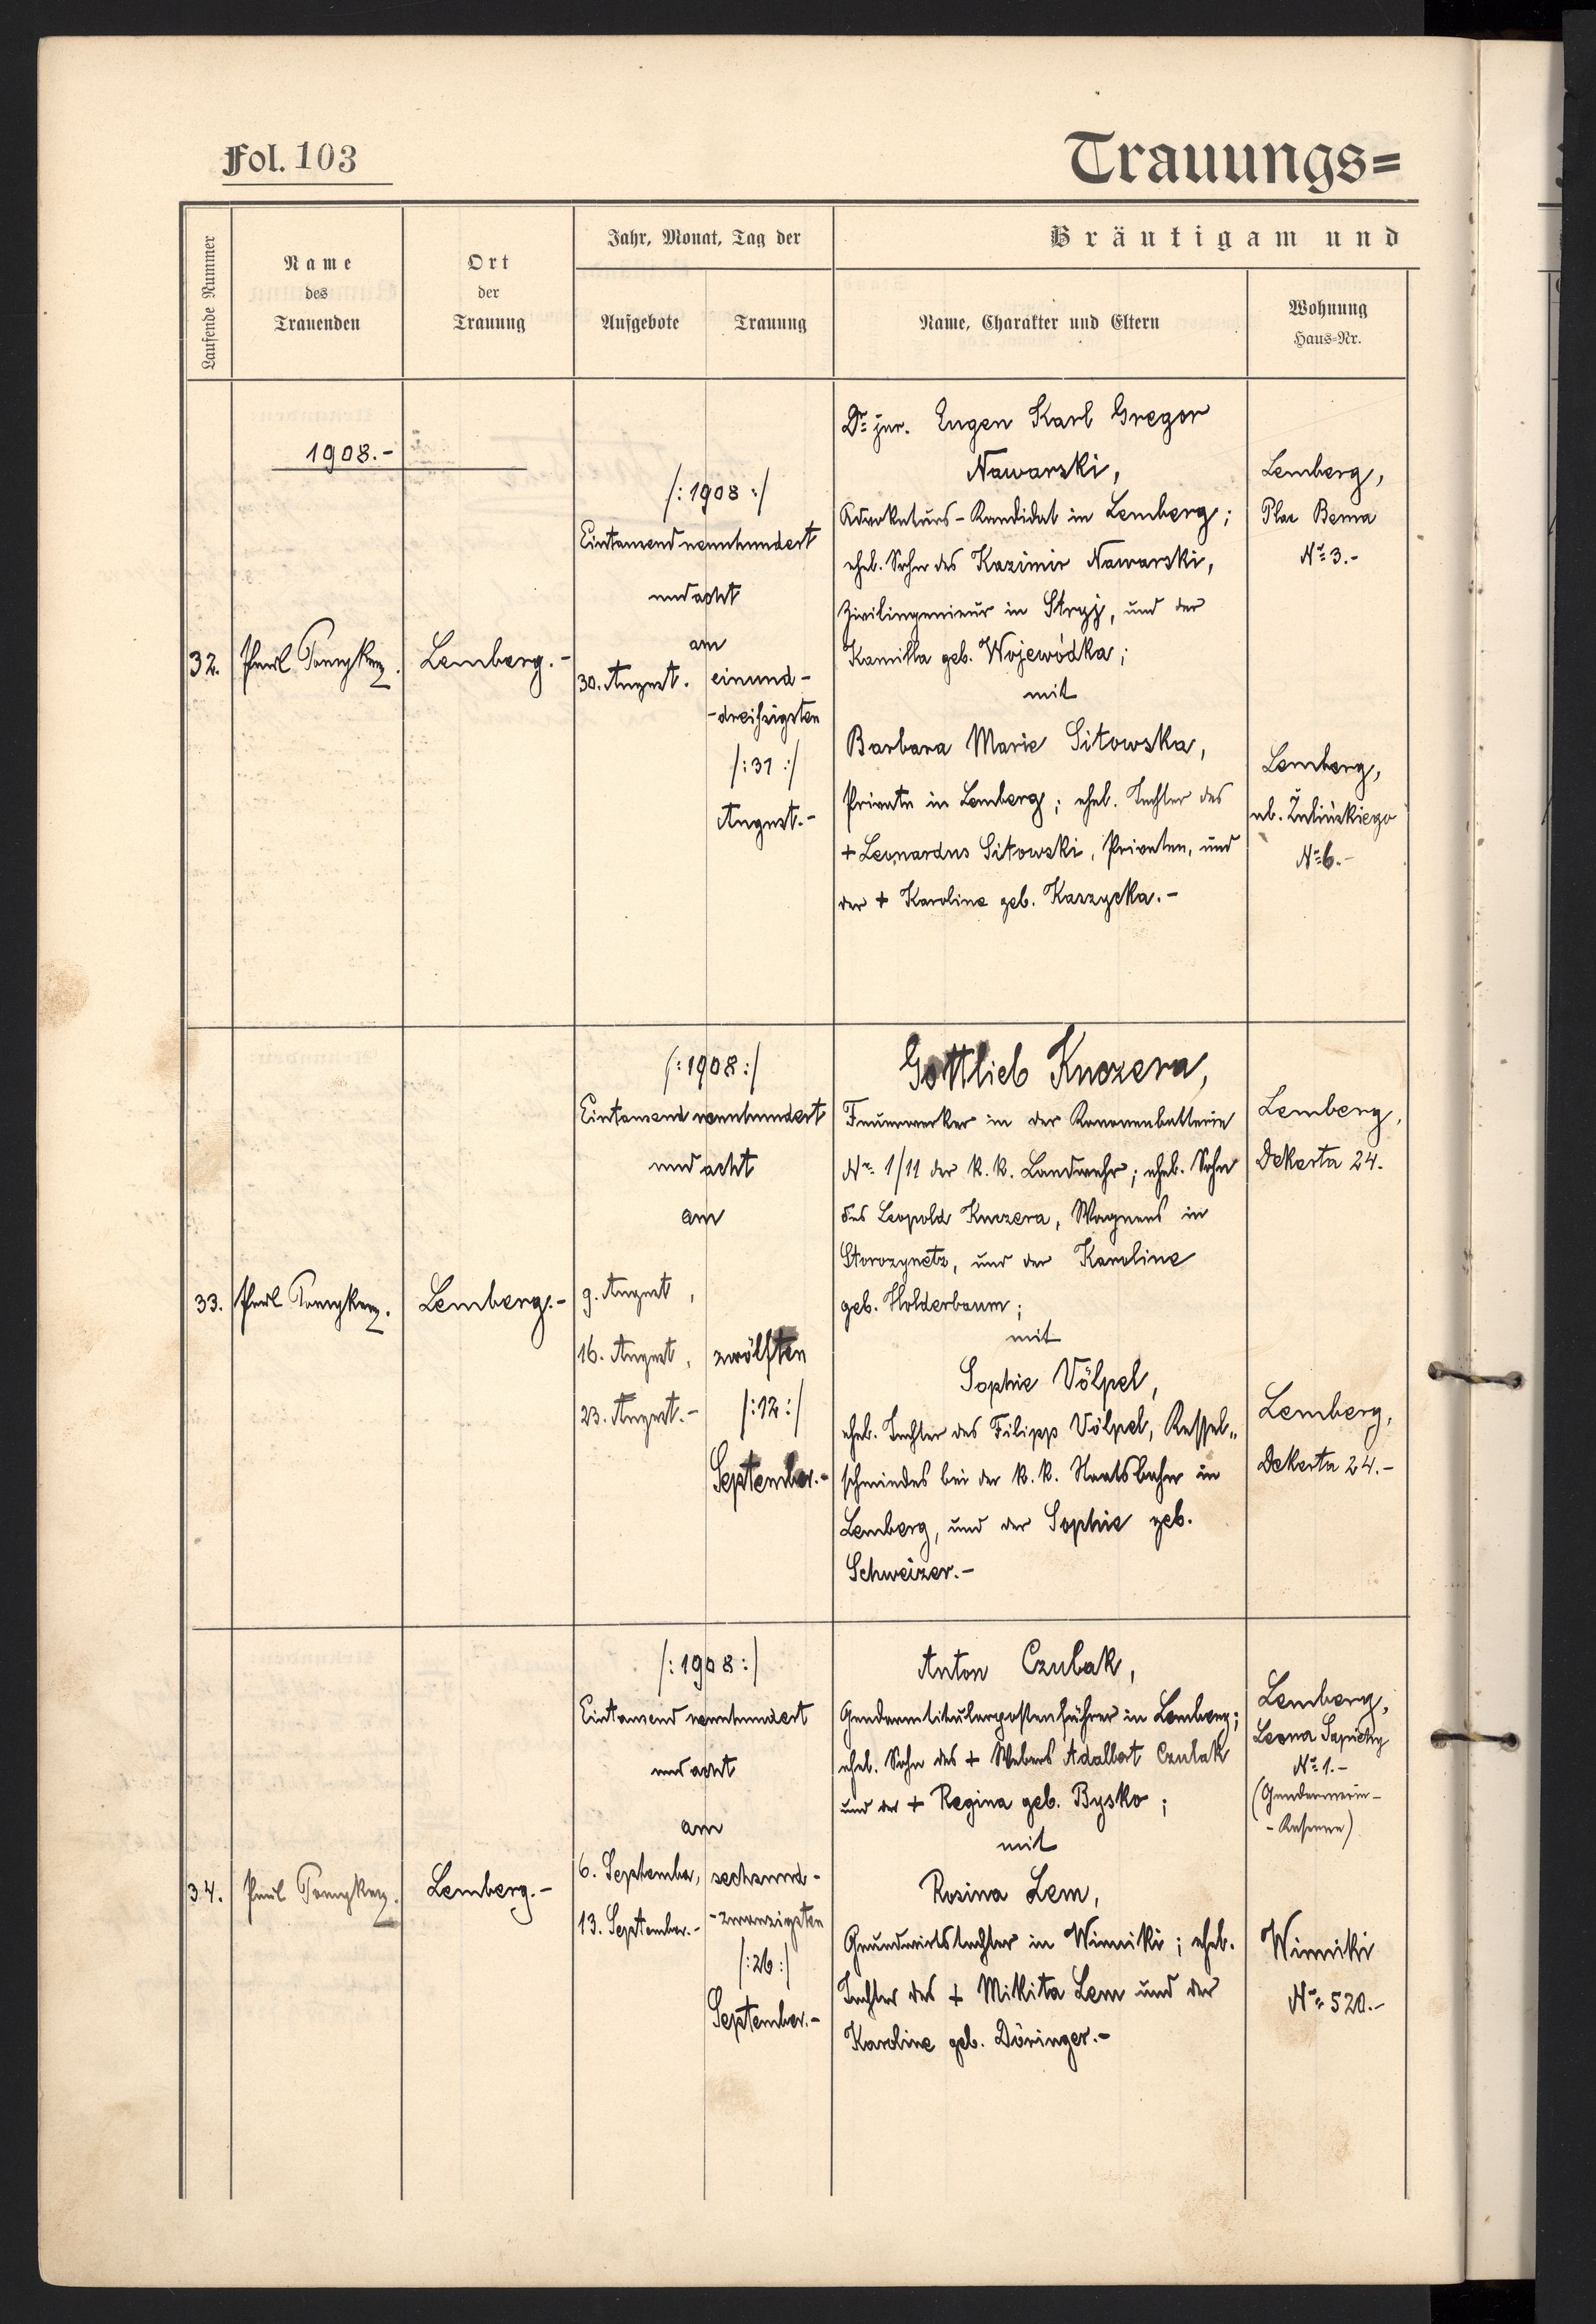 Fol. 103
Trauungs=
Laufende Nummer
Name
des
Trauenden
Ort
der
Trauung
Jahr, Monat, Tag der
Aufgebote
Trauung
Bräutigam und
Name, Charakter und Eltern
Wohnung
Haus=Nr.
1908.-
32.
Lemberg.-
/:1908:/
Eintausend neunhundert
und acht
am
30. August.
einund-
-dreißigsten
/:31:/
August.-
Dr. jur. Eugen Karl Gregor
Nawarski,
Advokaturs-Kandidat in Lemberg;
ehel. Sohn des Kazimir Nawarski,
Zivilingenieur in Stryj, und der
Kamilla geb. Wojewódka;
mit
Barbara Marie Sitowska,
Private in Lemberg; ehel. Tochter des
+ Leonardus Sitowski, Privaten, und
der + Karoline geb. Kaszycka.-
Lemberg,
Plac Bema
No. 3.-
Lemberg,
ul. Żulińskiego
No. 6.-
33.
Lemberg.-
/:1908:/
Eintausend neunhundert
und acht
am
9. August,
16. August,
23. August.-
zwölften
/:12:/
September.-
Gottlieb Knozera,
Feuerwerker in der Kanonenbatterie
Nr. 1/11 der k. k. Landwehr; ehel. Sohn
des Leopold Knozera, Wagners in
Storozynetz, und der Karoline
geb. Holderbaum;
mit
Sophie Völpel,
ehel. Tochter des Filipp Völpel, Kessel„
schmiedes bei der k. k. Staatsbahn in
Lemberg, und der Sophie geb.
Schweizer.-
Lemberg,
Dekerta 24.
Lemberg,
Dekerta 24.-
34.
Lemberg.-
/:1908:/
Eintausend neunhundert
und acht
am
6. September,
13. September.-
sechsund-
-zwanzigsten
/:26:/
September.-
Anton Czubak,
Gendarmtitularpostenführer in Lemberg;
ehel. Sohn des + Webers Adalbert Czubak
und der + Regina geb. Bysko;
mit
Rosina Lem,
Grundwirtstochter in Winniki; ehel.
Tochter des + Mikita Lem und der
Karoline geb. Döringer.-
Lemberg,
Leona Sapiehy
No. 1.-
(Gendarmerie-
-Kaserne)
Winniki
No. 520.-